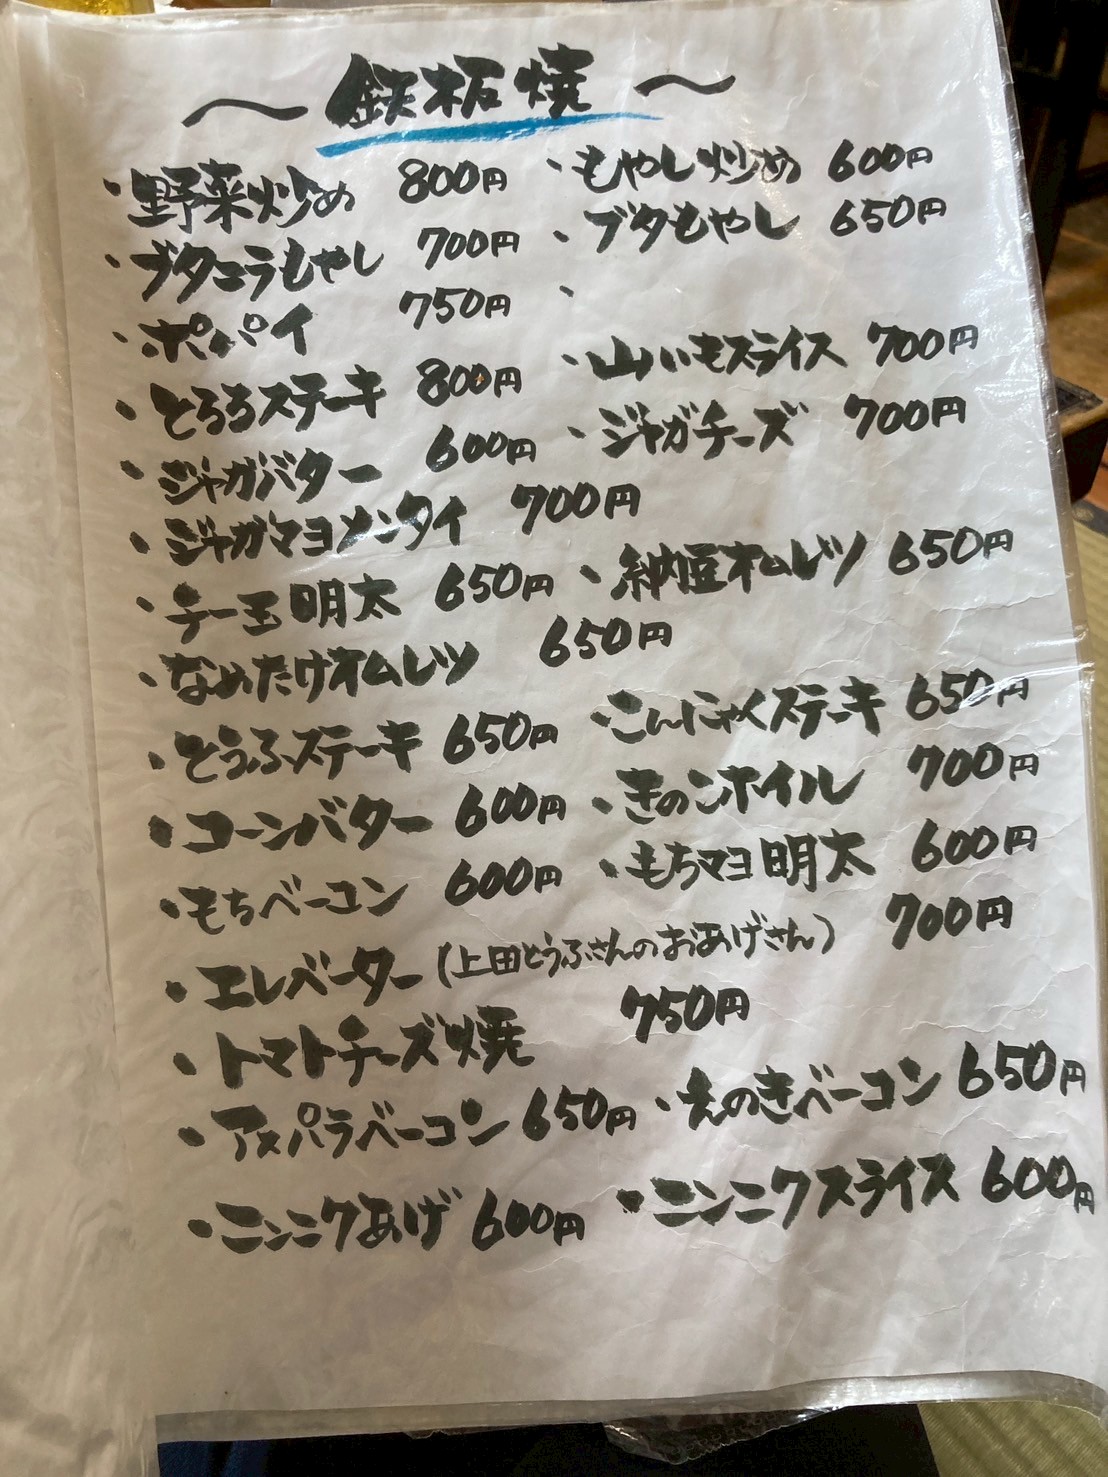 ～鉄板焼～
・野菜炒め 800円 ・もやし炒め 600円
・ブタニラもやし 700円 ・ブタもやし 650円
・ポパイ 750円 ・
・とろろステーキ 800円 ・山いもスライス 700円
・ジャガバター 600円 ・ジャガチーズ 700円
・ジャガマヨメンタイ 700円
・チー玉明太 650円 ・納豆オムレツ 650円
・なめたけオムレツ 650円
・とうふステーキ 650円 ・こんにゃくステーキ 650円
・コーンバター 600円 ・きのこホイル 700円
・もちベーコン 600円 ・もちマヨ明太 600円
・エレベーター(上田とうふさんのおあげさん) 700円
・トマトチーズ焼 750円
・アスパラベーコン 650円 ・えのきベーコン 650円
・ニンニクあげ 600円 ・ニンニクスライス 600円